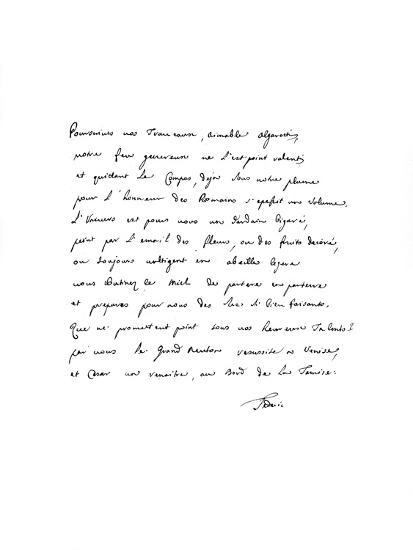 Poursuives vos Traveaux, aimable algarotti,
votre feu genereuse ne s'est point ralenti,
et quittant le Compas, deja sous votre plume
pour l'honneur des Romains s'epessit un volume.
L'Univers est pour vous un Jardain bigaré,
peint par l'email des fleurs, ou des fruits decoré,
ou toujours voltigent en abeille legere
vous butinez le miel de parterre en parterre
et prepares pour nous des sucs si bien faisants.
Que ne promettent point vos heureux Talents?
par vous le grand Neuton resusite a Venise,
et Cesar va renaitre, au Bord de la Tamise.
Federic